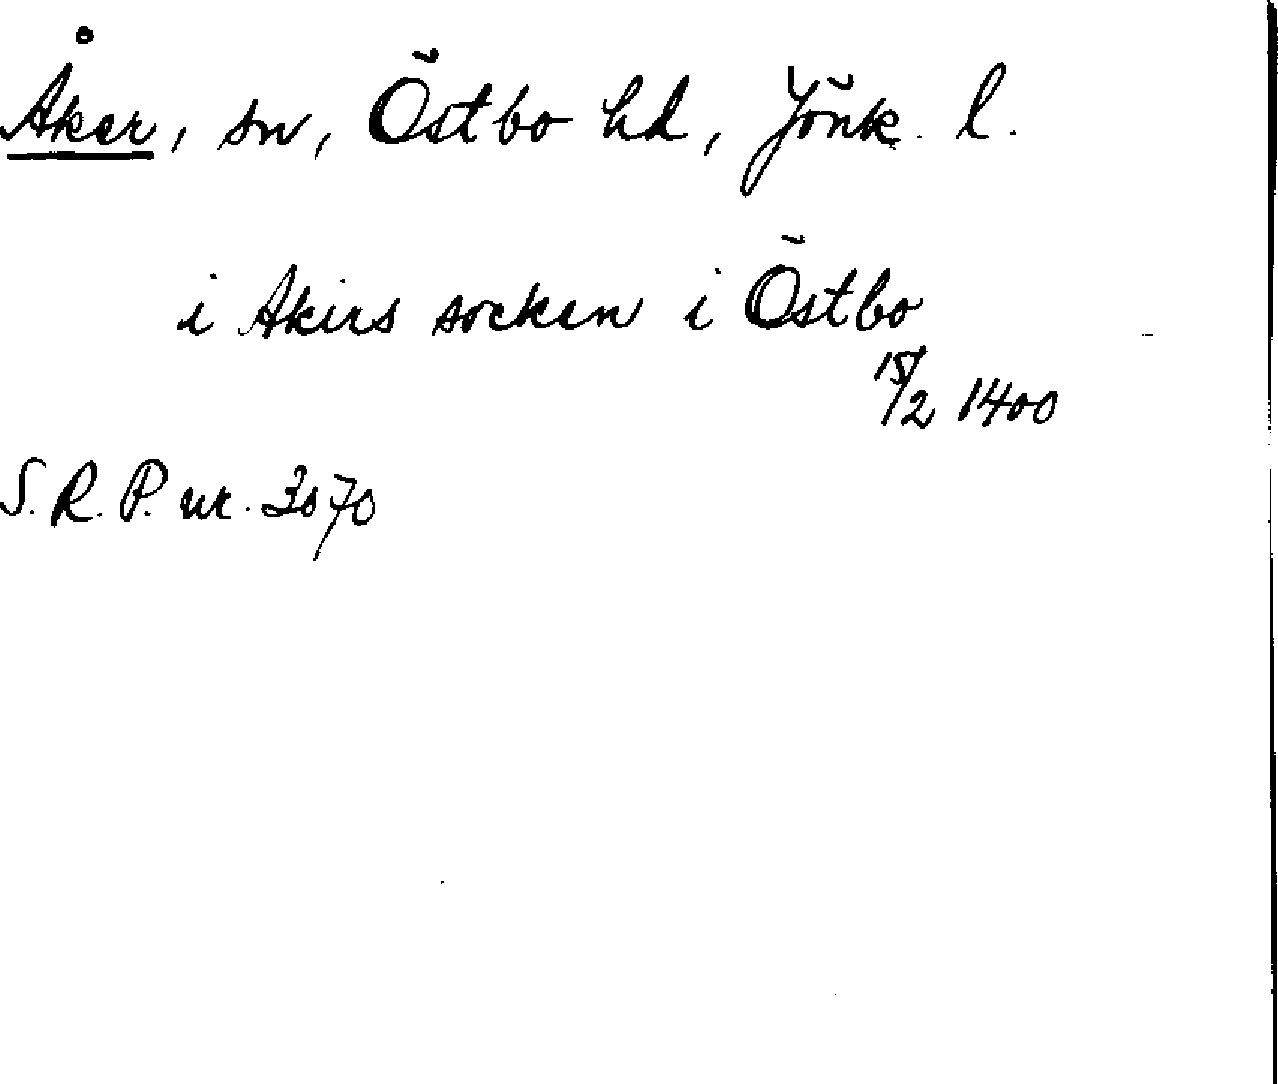 Åker, sn, Östbo hd, Jönk. l.
i Akirs socken i Östbo
15/2 1400
S. R. P. nr. 3070